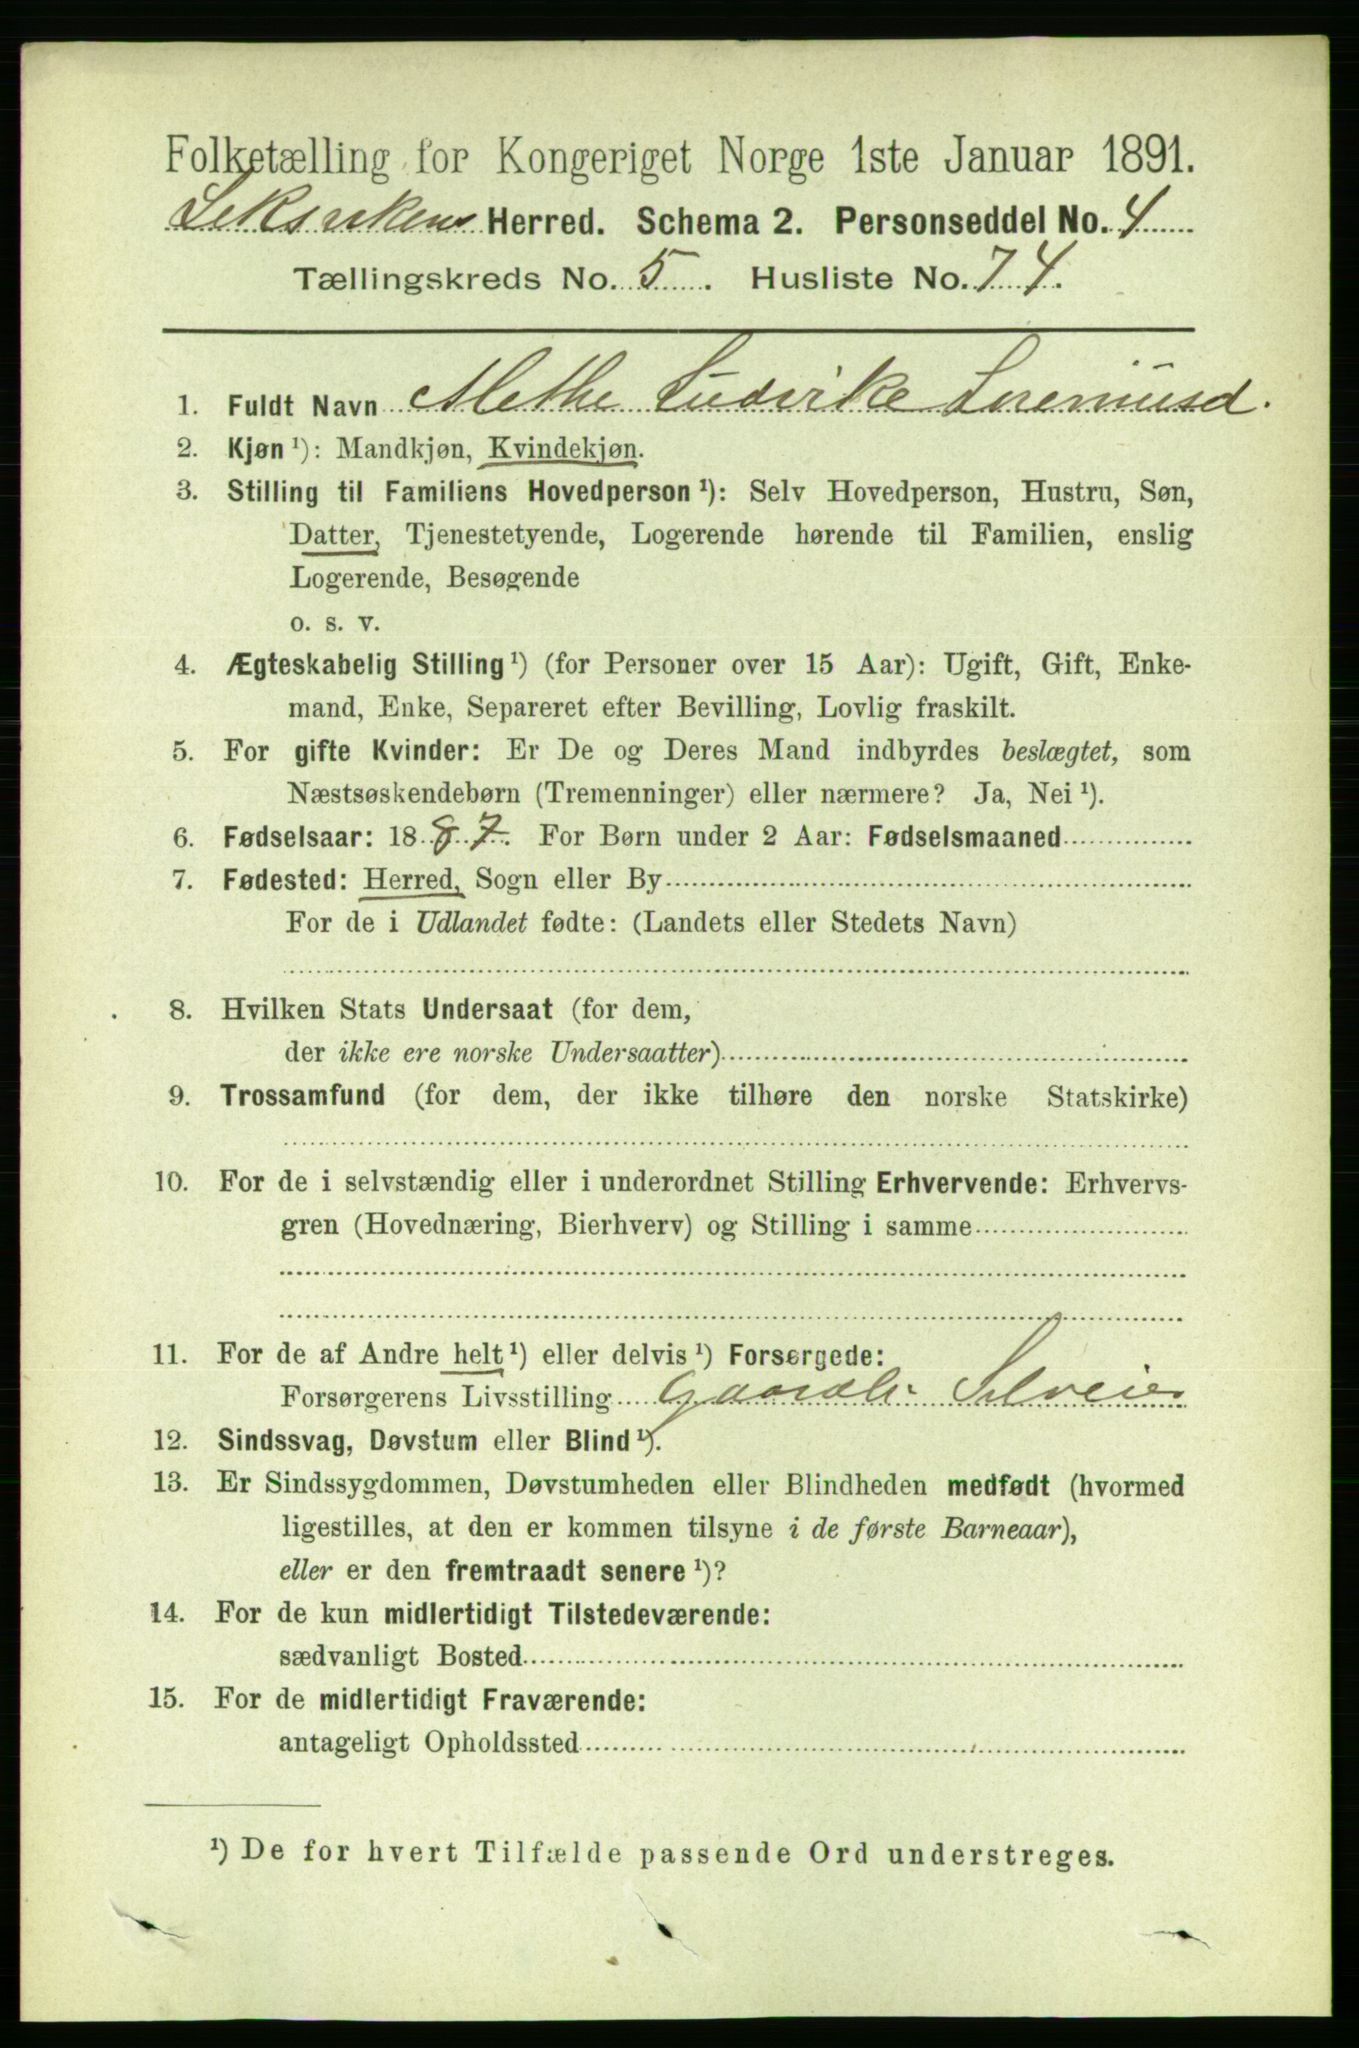 Folketælling for Kongeriget Norge 1ste Januar 1891.
Leksvikens Herred. Schema 2. Personseddel No. 4
Tællingskreds No. 5. Husliste No. 74.
1. Fuldt Navn Methe Ludvike Lorentsd.
2. Kjøn ¹): Mandkjøn, Kvindekjøn.
3. Stilling til Familiens Hovedperson ¹): Selv Hovedperson, Hustru, Søn,
Datter, Tjenestetyende, Logerende hørende til Familien, enslig
Logerende, Besøgende
o. s. v.
4. Ægteskabelig Stilling ¹) (for Personer over 15 Aar): Ugift, Gift, Enke-
mand, Enke, Separeret efter Bevilling, Lovlig fraskilt.
5. For gifte Kvinder: Er De og Deres Mand indbyrdes beslægtet, som
Næstsøskendebørn (Tremenninger) eller nærmere? Ja, Nei ¹).
6. Fødselsaar: 1887. For Børn under 2 Aar: Fødselsmaaned
7. Fødested: Herred, Sogn eller By
For de i Udlandet fødte: (Landets eller Stedets Navn)
8. Hvilken Stats Undersaat (for dem,
der ikke ere norske Undersaatter)
9. Trossamfund (for dem, der ikke tilhøre den norske Statskirke)
10. For de i selvstændig eller i underordnet Stilling Erhvervende: Erhvervs-
gren (Hovednæring, Bierhverv) og Stilling i samme
11. For de af Andre helt ¹) eller delvis ¹) Forsørgede:
Forsørgerens Livsstilling Gaardbr. Selveier
12. Sindssvag, Døvstum eller Blind ¹).
13. Er Sindssygdommen, Døvstumheden eller Blindheden medfødt (hvormed
ligestilles, at den er kommen tilsyne i de første Barneaar),
eller er den fremtraadt senere ¹)?
14. For de kun midlertidigt Tilstedeværende:
sædvanligt Bosted
15. For de midlertidigt Fraværende:
antageligt Opholdssted
¹) De for hvert Tilfælde passende Ord understreges.